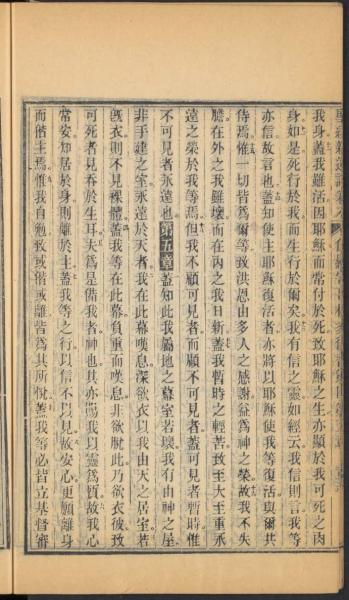 我身蓋我雖活因耶穌而常付於死致耶穌之生亦顯於我可死之肉
身如是死行於我而生行於爾矣我有信之靈如經云我信則言我等
亦信故言也蓋知使主耶穌復活者亦將以耶穌使我等復活與爾共
侍焉惟一切皆為爾等致洪恩由多人之感謝益為神之榮故我不失
膽在外之我雖壞而在內之我日新蓋我暫時之輕苦致主大至重永
遠之榮於我等焉但我不顧可見者而顧不可見者蓋可見者暫時惟
不可見者永遠也第五章蓋知此我屬地之幕室若壞我有由神之屋
非手建之室永遠於天者我在此幕嘆息深欲衣以我由天之居室若
既衣則不見裸體蓋我等在此幕負重而嘆息非欲脫此乃欲衣彼致
可死者見吞於生耳夫為是備我者神也其亦賜我以靈為質故我心
常安知居於身則離於主蓋我等之行以信不以見故安心更願離身
而偕主焉惟我自勉致或偕或離皆為其所悅蓋我等必皆立基督審